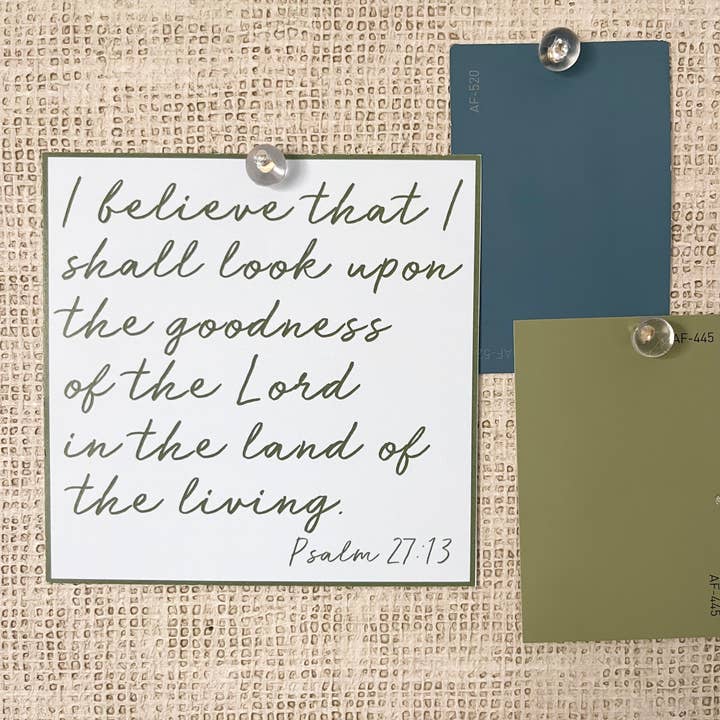 I believe that I
shall look upon
the goodness
of the Lord
in the land of
the living.
Psalm 27:13
AF-520
AF-445
AF-445